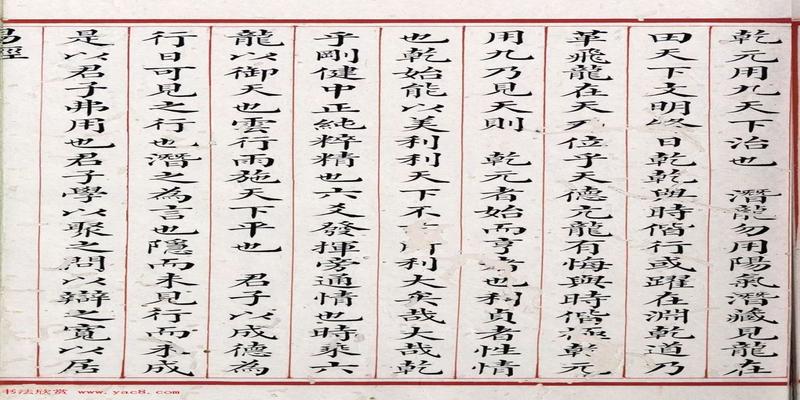 乾元用九天下治也 潛龍勿用陽氣潛藏見龍在
田天下文明終日乾乾與時偕行或躍在淵乾道乃
革飛龍在天乃位乎天德亢龍有悔與時偕極乾元
用九乃見天則 乾元者始而亨者也利貞者性情
也乾始能以美利利天下不所利大矣哉大哉乾
乎剛健中正純粹精也六爻發揮旁通情也時乘六
龍以御天也雲行雨施天下平也 君子以成德為
行日可見之行也潛之為言也隱而未見行而未成
是以君子弗用也君子學以聚之問以辯之寬以居
易經
书法欣赏 www.yac8.com